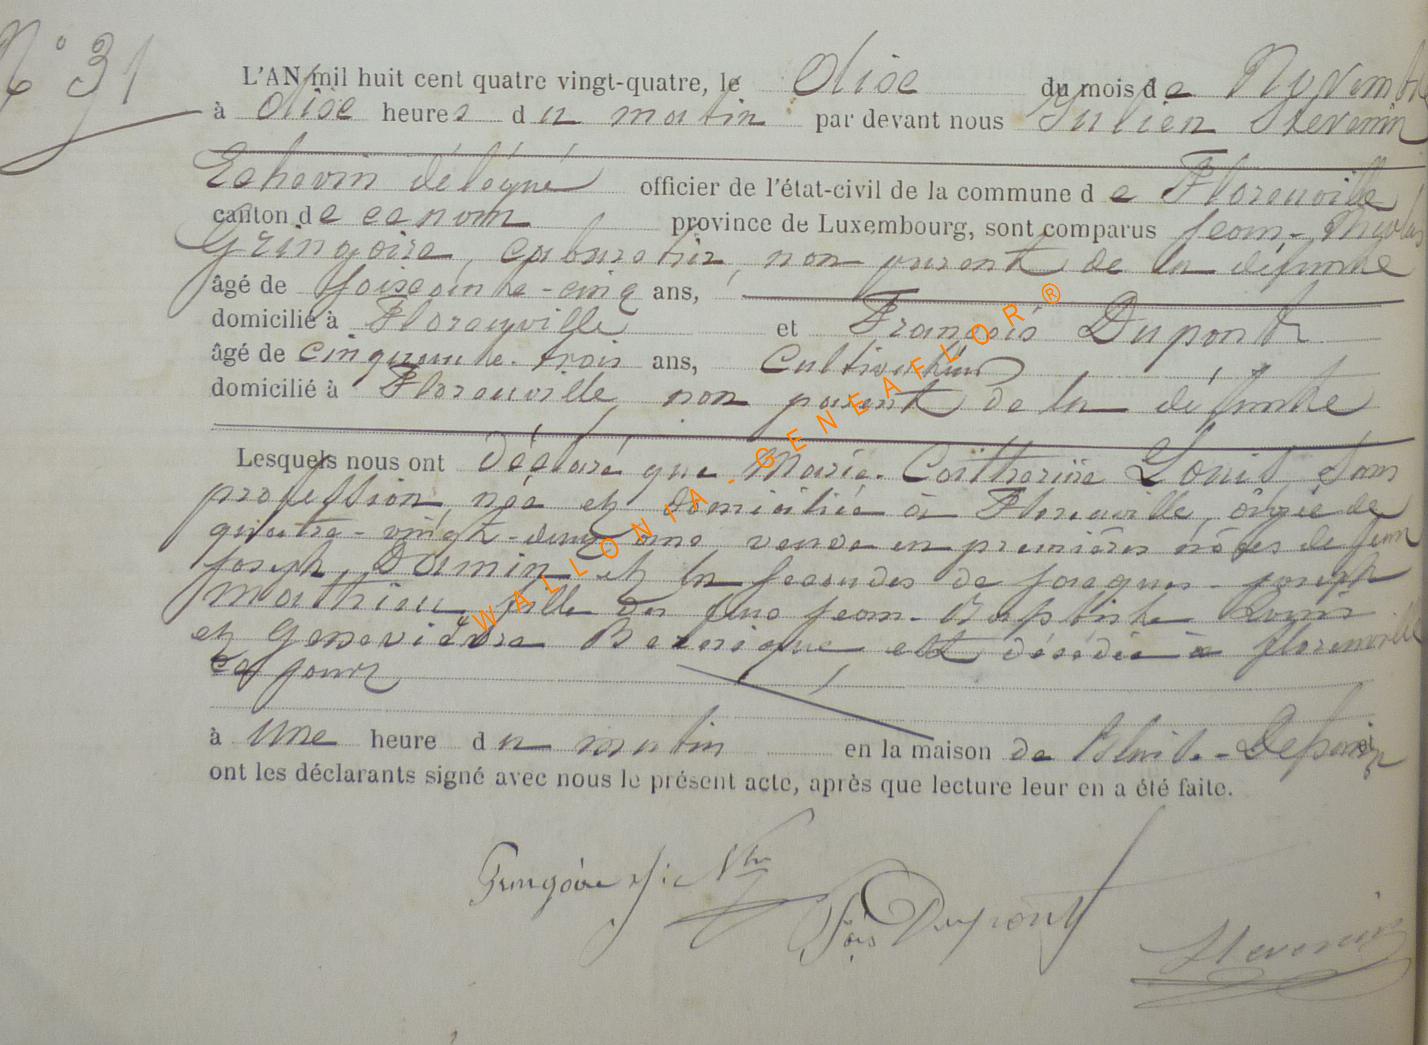 N° 31
L'AN mil huit cent quatre vingt-quatre, le dise du mois de Novembre
à dise heures du matin par devant nous Julien Stevenin
Echevin délégué officier de l'état-civil de la commune de Florenville
canton de province de Luxembourg, sont comparus Jean-Nicolas
Gringoire, cabaretier, non parent de la défunte
âgé de soiscainte-cinq ans,
domicilié à Florenville et François Dupont
âgé de cinquante-trois ans, Cultivateur
domicilié à Florenville, non parent de la défunte
Lesquels nous ont déclaré que Marie-Catherine Louis, sans
profession, née et domiciliée à Florenville, âgée de
quatre-vingt-deux ans veuve en premières nôces de Jean
Joseph et en secondes de Jacques-Joseph
Mathieu, fille des feus Jean-Baptiste Louis
et Geneviève est désédée à Florenville
ce jour
à une heure du matin en la maison de et
ont les déclarants signé avec nous le présent acte, après que lecture leur en a été faite.
Gringoire J: Nas
Fçois Dupont
Stevenin
WALLONIA-GENEAFLOR®